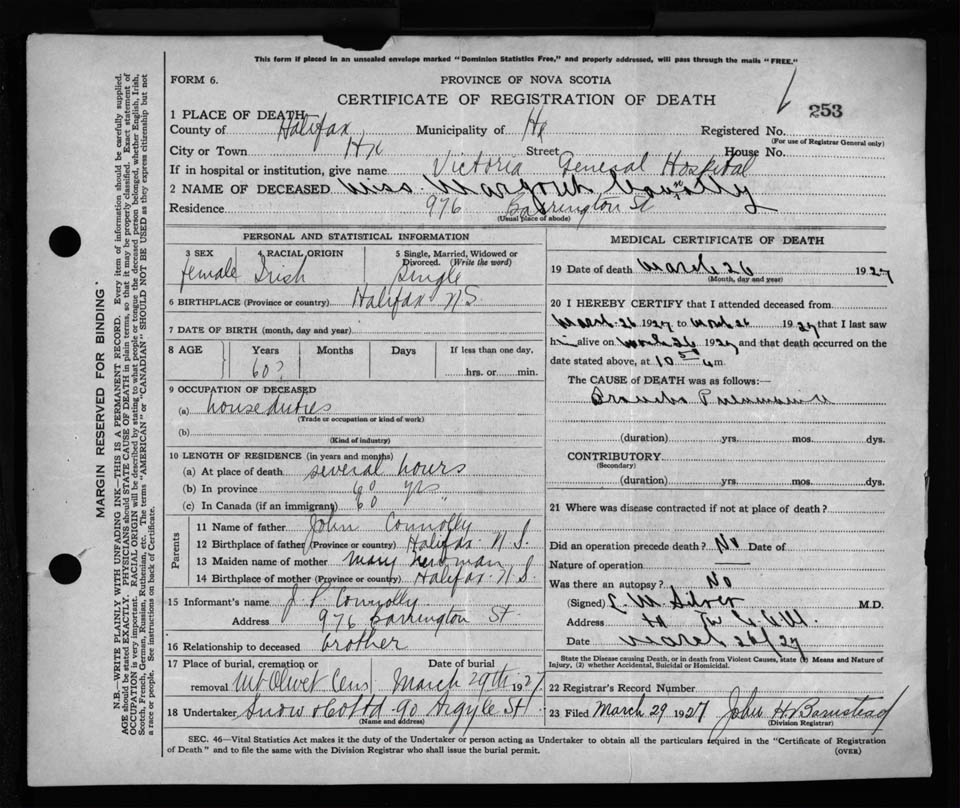 This form if placed in an unsealed envelope marked "Dominion Statistics Free," and properly addressed, will pass through the mails "FREE."
FORM 6.
PROVINCE OF NOVA SCOTIA
CERTIFICATE OF REGISTRATION OF DEATH
253
1 PLACE OF DEATH
County of Halifax Municipality of Hx Registered No.
(For use of Registrar General only)
City or Town Hx Street House No.
If in hospital or institution, give name Victoria General Hospital
2 NAME OF DECEASED Miss Margaret Connolly
Residence 976 Barrington St
(Usual place of abode)
PERSONAL AND STATISTICAL INFORMATION
3 SEX 4 RACIAL ORIGIN 5 Single, Married, Widowed or Divorced. (Write the word)
female Irish single
6 BIRTHPLACE (Province or country) Halifax N.S.
7 DATE OF BIRTH (month, day and year)
8 AGE Years Months Days If less than one day,
60? hrs. or min.
9 OCCUPATION OF DECEASED
(a) house duties
(Trade or occupation or kind of work)
(b)
(Kind of industry)
10 LENGTH OF RESIDENCE (in years and months)
(a) At place of death several hours
(b) In province 60 yrs
(c) In Canada (if an immigrant) 60 "
Parents
11 Name of father John Connolly
12 Birthplace of father (Province or country) Halifax N.S.
13 Maiden name of mother Mary
14 Birthplace of mother (Province or country) Halifax N.S.
15 Informant's name J. P. Connolly
Address 976 Barrington St.
16 Relationship to deceased brother
17 Place of burial, cremation or Date of burial
removal Mt Olivet Cem March 29th 1927
18 Undertaker Snow & Co Ltd 90 Argyle St
(Name and address)
MEDICAL CERTIFICATE OF DEATH
19 Date of death March 26 1927
(Month, day and year)
20 I HEREBY CERTIFY that I attended deceased from
March 26 1927 to March 26 1927 that I last saw
h alive on March 26 1927 and that death occurred on the
date stated above, at 10 m.
The CAUSE of DEATH was as follows:—
Broncho Pneumonia
(duration) yrs. mos. dys.
CONTRIBUTORY
(Secondary)
(duration) yrs. mos. dys.
21 Where was disease contracted if not at place of death?
Did an operation precede death? No Date of
Nature of operation
Was there an autopsy? No
(Signed) L. M. Silver M.D.
Address
Date March 26/27
State the Disease causing Death, or in death from Violent Causes, state (1) Means and Nature of
Injury, (2) whether Accidental, Suicidal or Homicidal.
22 Registrar's Record Number
23 Filed March 29 1927 John H. Barnstead
(Division Registrar)
SEC. 46—Vital Statistics Act makes it the duty of the Undertaker or person acting as Undertaker to obtain all the particulars required in the "Certificate of Registration
of Death" and to file same with the Division Registrar who shall issue the burial permit.
(OVER)
MARGIN RESERVED FOR BINDING
N.B.—WRITE PLAINLY WITH UNFADING INK—THIS IS A PERMANENT RECORD. Every item of information should be carefully supplied.
AGE should be stated EXACTLY. PHYSICIANS should STATE CAUSE OF DEATH in plain terms, so that it may be properly classified. Exact statement of
OCCUPATION is very important. RACIAL ORIGIN will be described by stating to what people or tongue the deceased person belonged, whether English, Irish,
Scotch, French, German, Russian, Ruthenian, etc. The terms "AMERICAN" or "CANADIAN" SHOULD NOT BE USED as they express citizenship but not
a race or people. See instructions on back of Certificate.